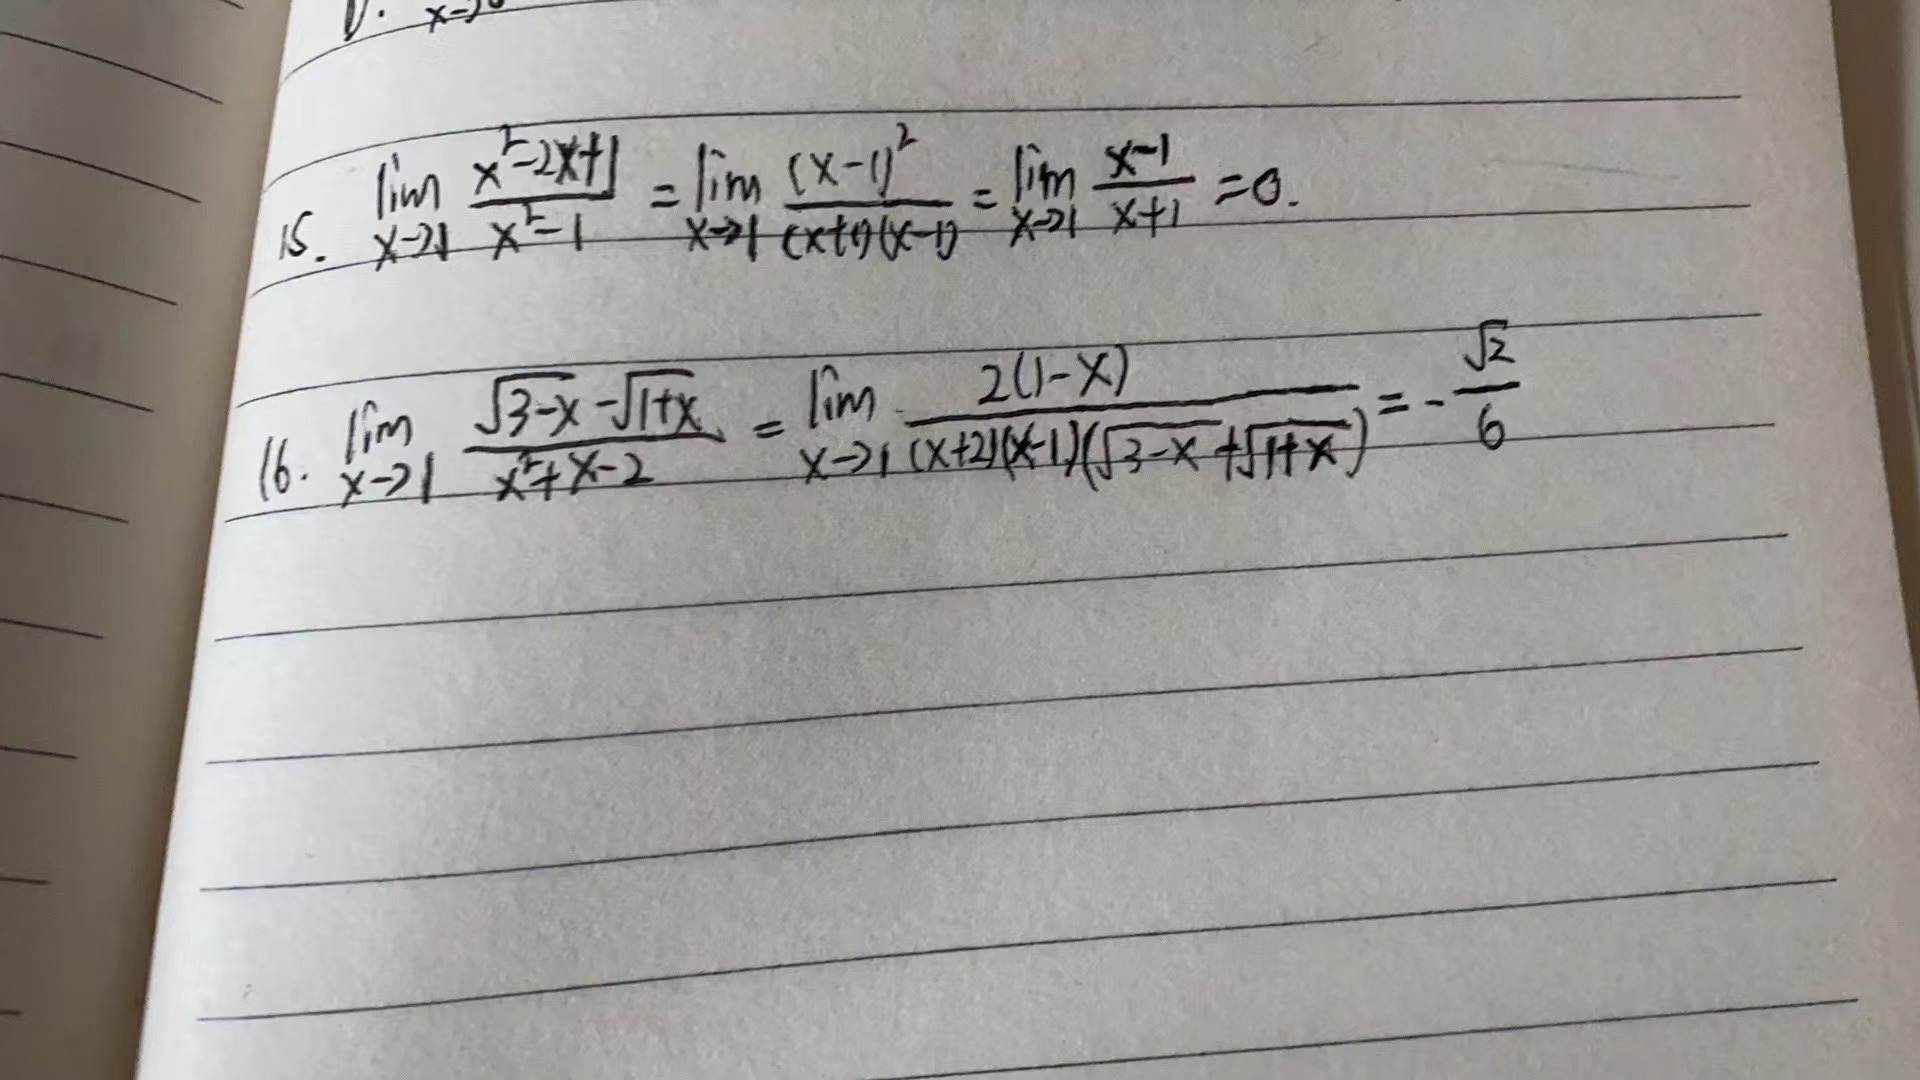 x→0
15. lim x→1 (x²-2x+1)/(x²-1) = lim x→1 (x-1)²/((x+1)(x-1)) = lim x→1 (x-1)/(x+1) = 0.
16. lim x→1 (√(3-x) - √(1+x))/(x²+x-2) = lim x→1 2(1-x)/((x+2)(x-1)(√(3-x) + √(1+x))) = -√2/6